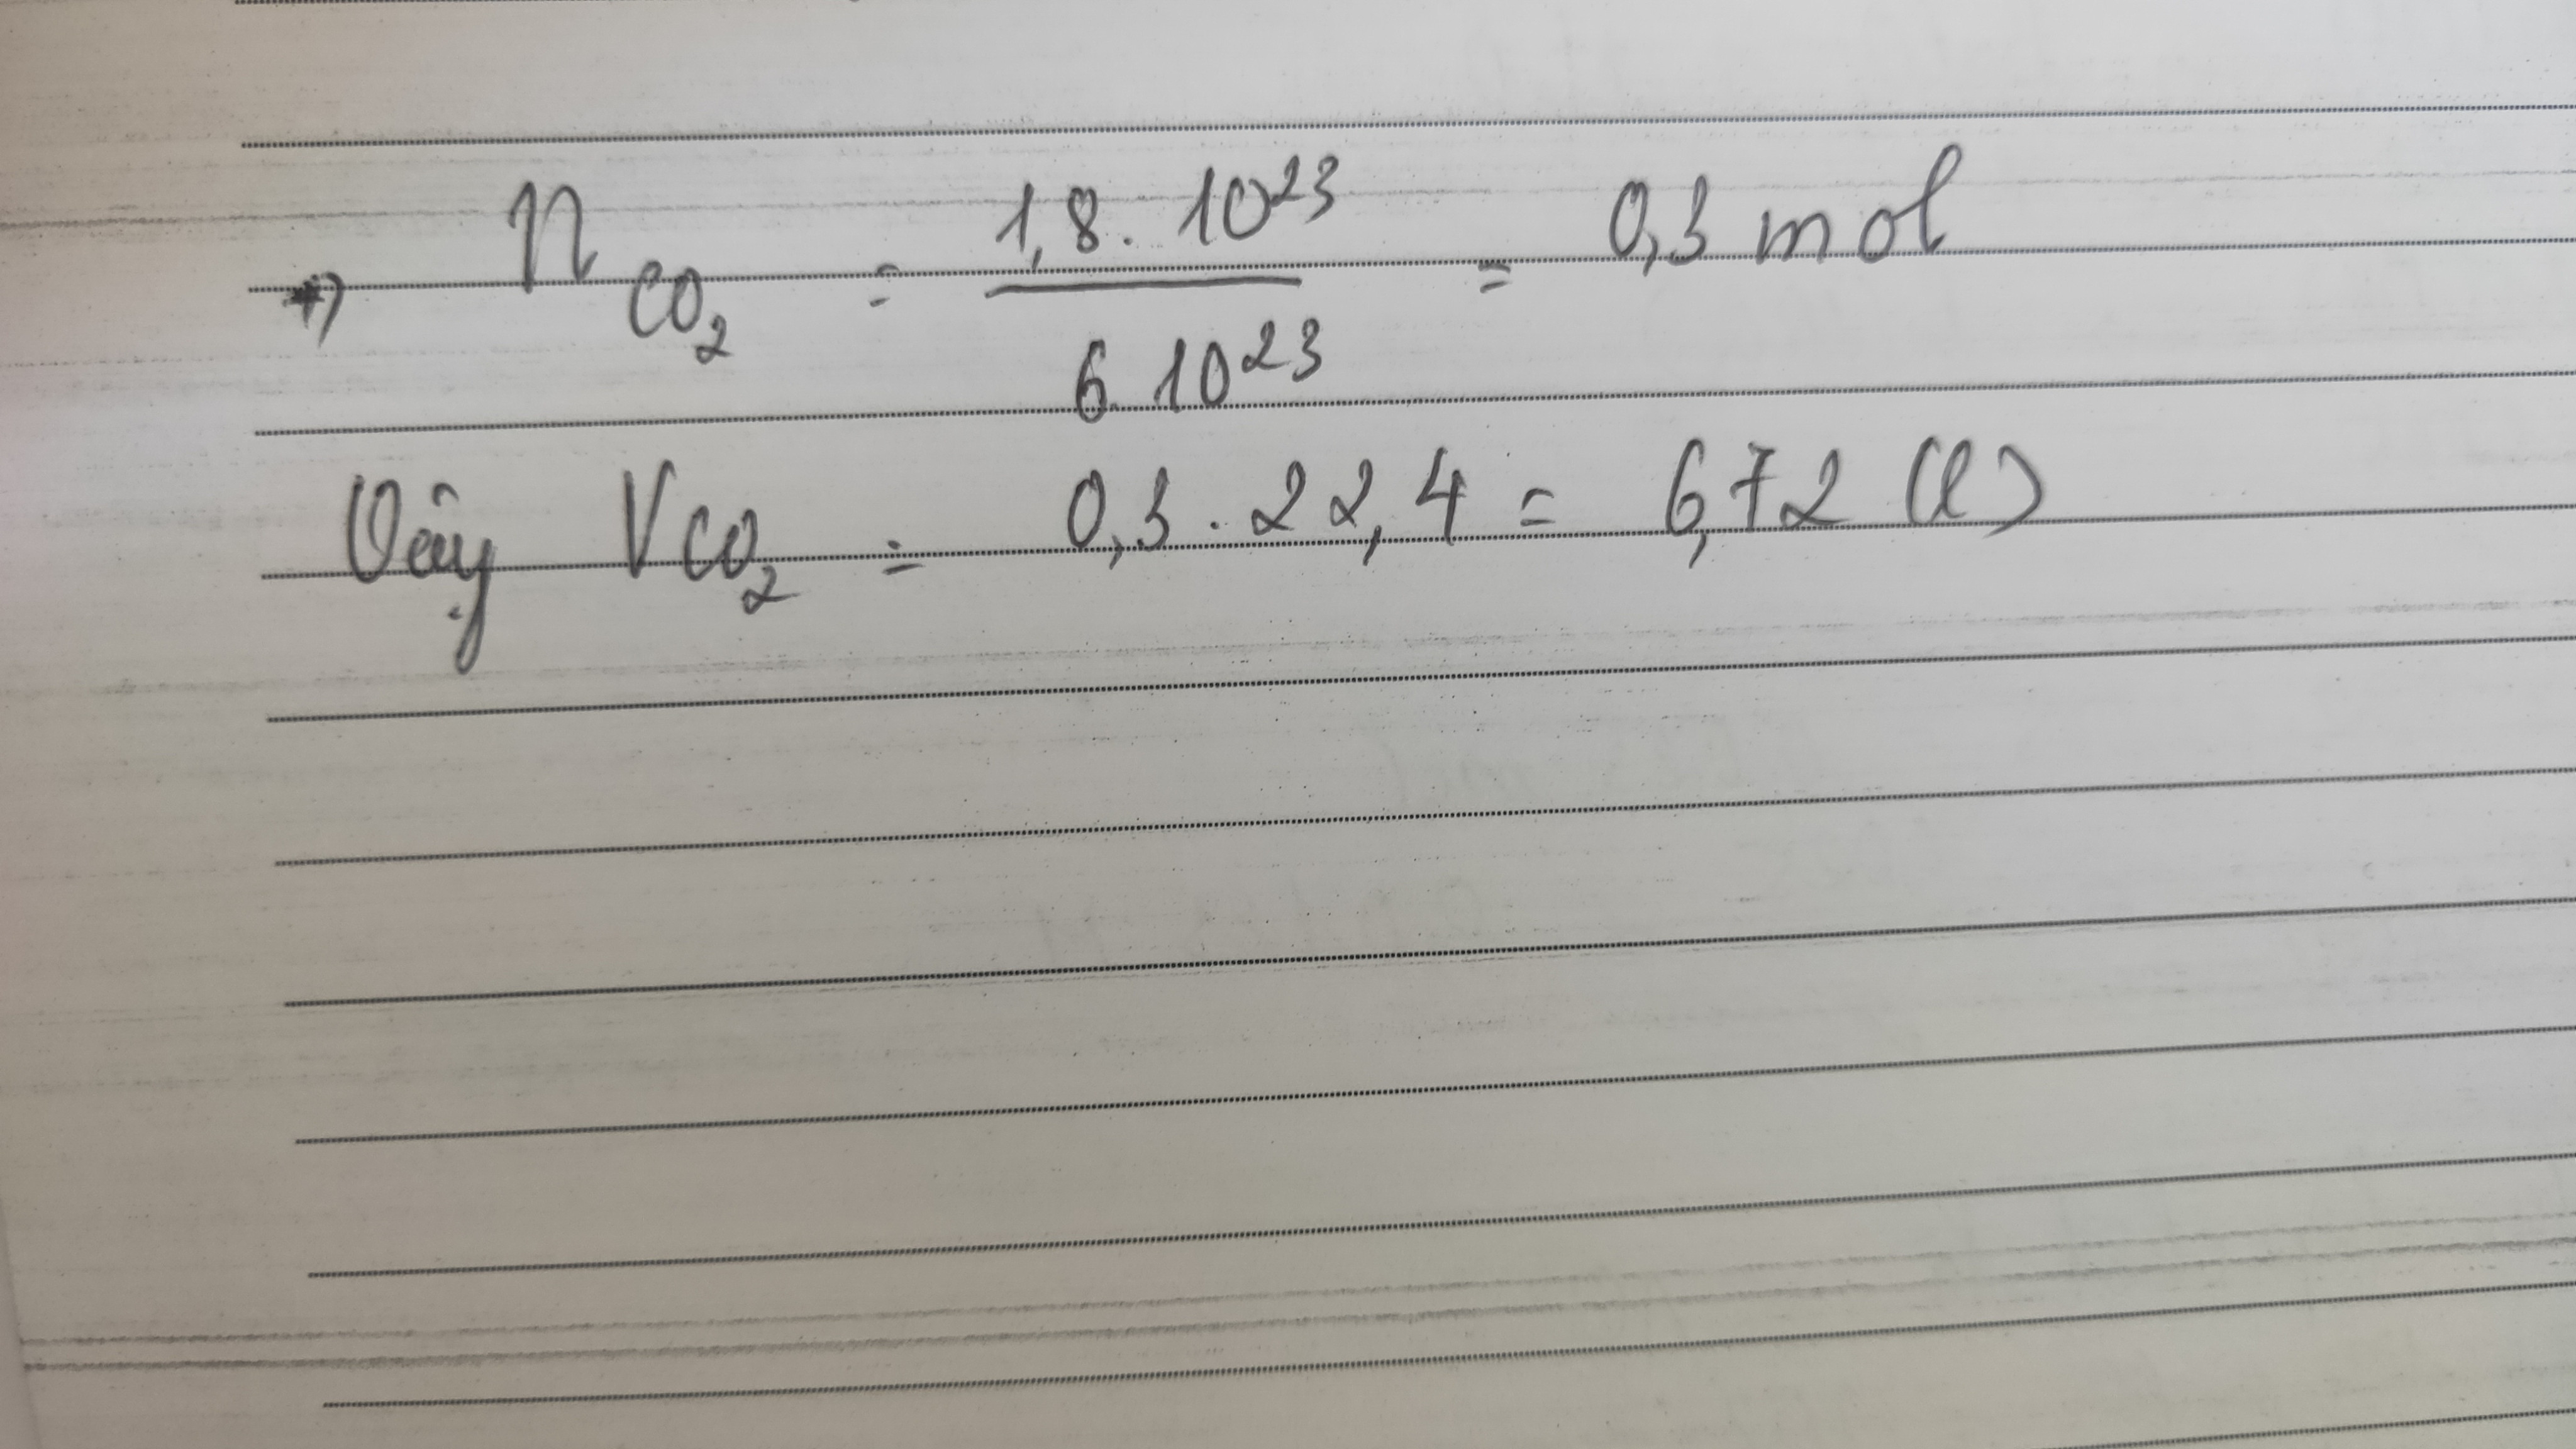 *) n CO₂ = 1,8 . 10²³ / 6 . 10²³ = 0,3 mol
Vậy V CO₂ = 0,3 . 22,4 = 6,72 (l)